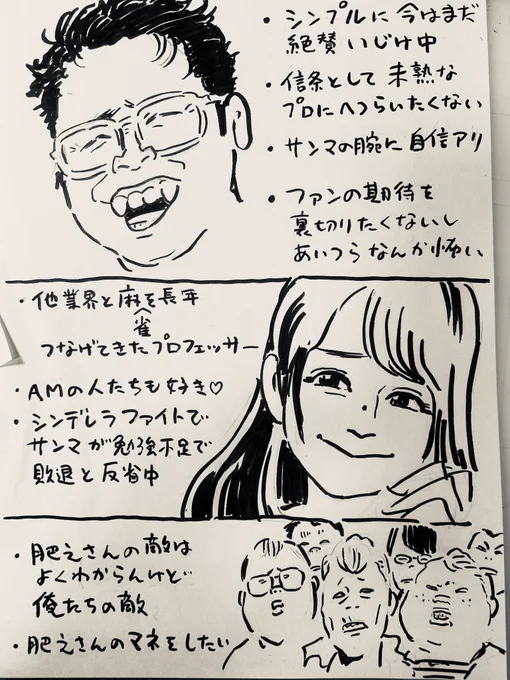 ・シンプルに 今はまだ
絶賛いじけ中
・信条として 未熟な
プロにへつらいたくない
・サンマの腕に 自信アリ
・ファンの期待を
裏切りたくないし
あいつらなんか怖い
・他業界と麻を長年
雀
つなげてきたプロフェッサー
・AMの人たちも好き♡
・シンデレラファイトで
サンマが勉強不足で
敗退と反省中
・肥えさんの敵は
よくわからんけど
俺たちの敵
・肥えさんのマネをしたい